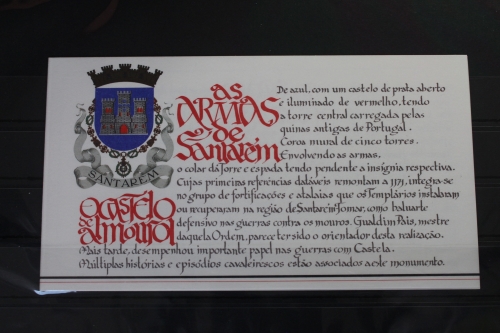 as
ARMAS
de
Santarém
De azul, com um castelo de prata aberto
e iluminado de vermelho, tendo
a torre central carregada pelas
quinas antigas de Portugal.
Coroa mural de cinco torres.
Envolvendo as armas,
o colar da Torre e espada tendo pendente a insígnia respectiva.
SANTARÉM
O CASTELO
de
almourol
Cujas primeiras referências datáveis remontam a 1171, integra-se
no grupo de fortificações e atalaias que os Templários instalaram
ou recuperaram na região de Santarém-Tomar, como baluarte
defensivo nas guerras contra os mouros. Gualdim Pais, mestre
daquela Ordem, parece ter sido o orientador desta realização.
Mais tarde, desempenhou importante papel nas guerras com Castela.
Múltiplas histórias e episódios cavaleirescos estão associados a este monumento.